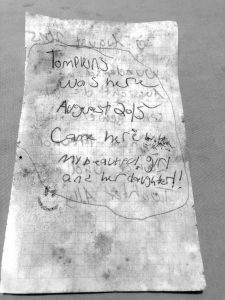 TOMPKINS
was here
August 2015
Came here with
my beautiful girl
and her daughter!!